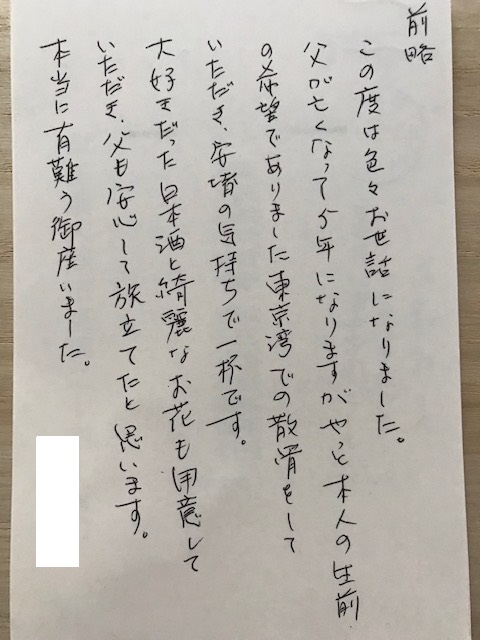 前略
この度は色々お世話になりました。
父が亡くなって5年になりますがやっと本人の生前
の希望でありました東京湾での散骨をして
いただき、安堵の気持ちで一杯です。
大好きだった日本酒と綺麗なお花も用意して
いただき、父も安心して旅立てたと思います。
本当に有難う御座いました。